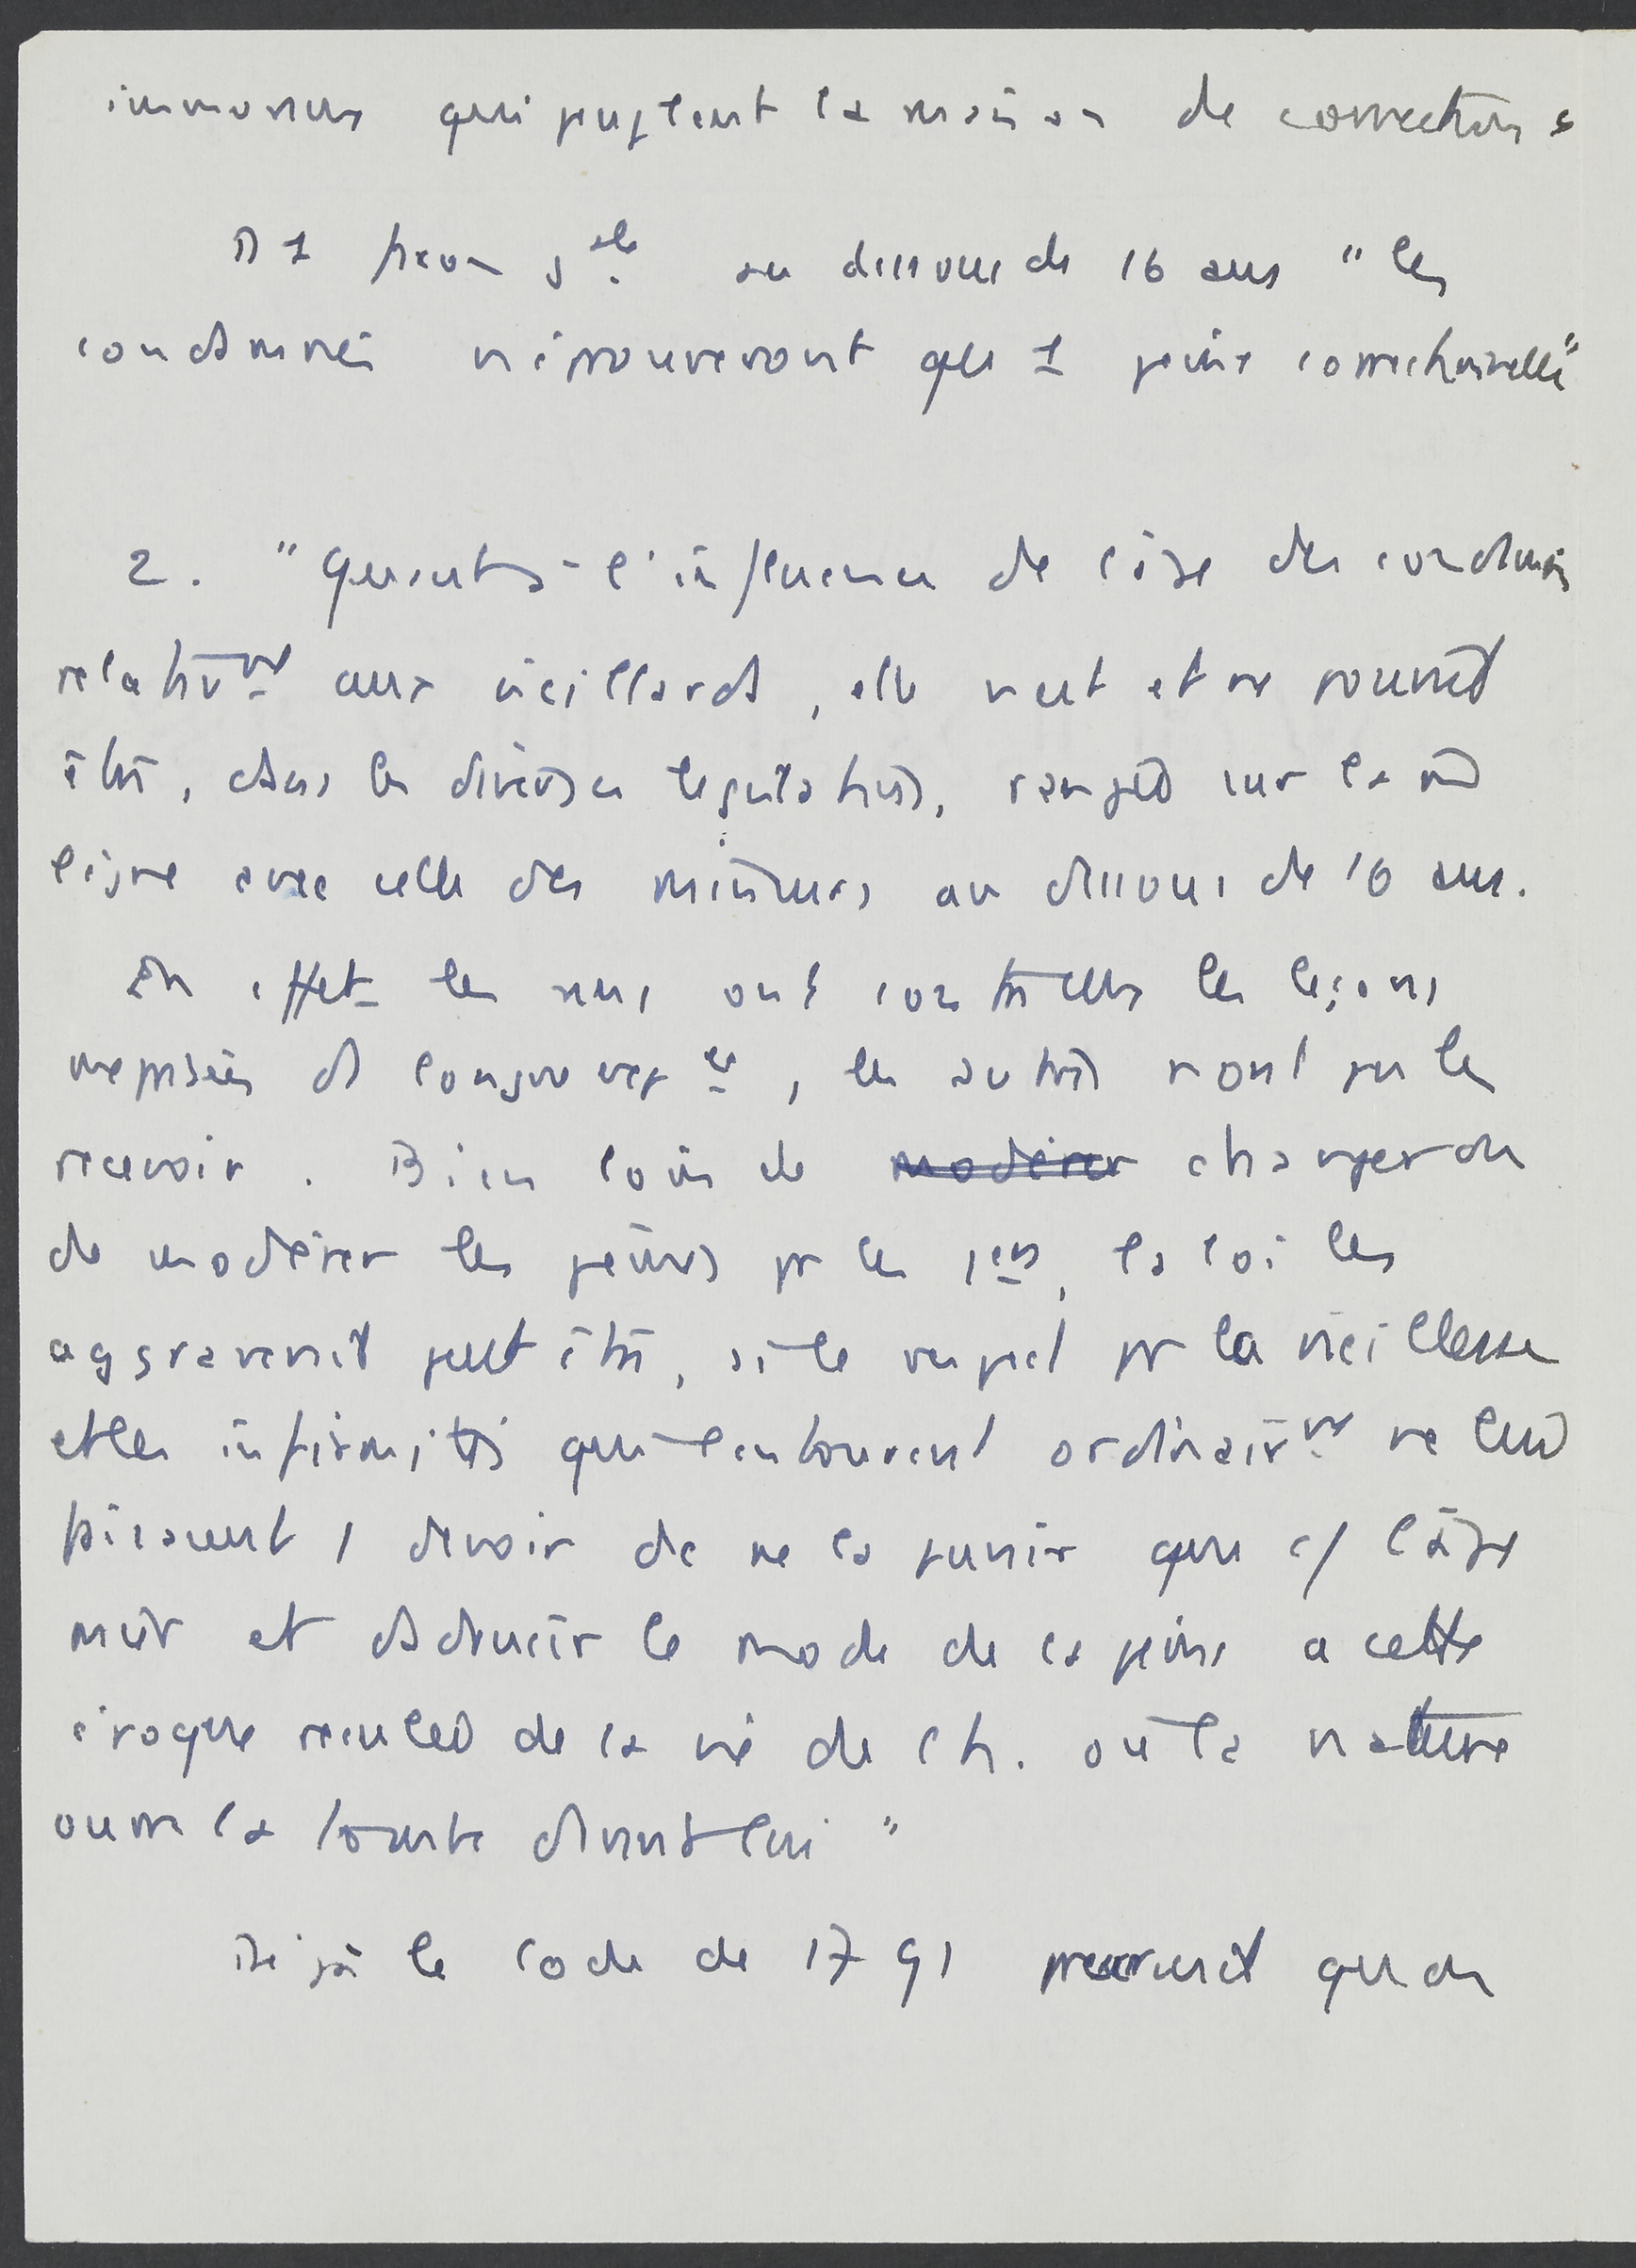 immondes qui peuplent la maison de correction s
D 1 façon gale au dessous de 16 ans " les
condamnés n'éprouveront que 1 peine correctionnelle"
2. " Quant à l'influence de l'âge des condamnés
relativmt aux vieillards, elle n'est et ne pourrait
être, dans les diverses législations, rangée sur la m
ligne avec celle des mineurs au dessous de 16 ans.
En effet les uns ont contre eux les leçons
méprisées de l'âge, les autres n'ont pu les
recevoir. Bien loin de modérer changer ou
de modérer les peines pr les 1ers, la loi les
aggraverait peut être, si le respect pr la vieillesse
et les infirmités qui l'entourent ordinairmt ne lui
faisaient 1 devoir de ne la punir que c/ l'âge
mûr et d'adoucir le mode de la peine a cette
époque reculée de la vie de l'h. où la nature
ouvre la tombe devant lui "
Déjà le Code de 1791 que des